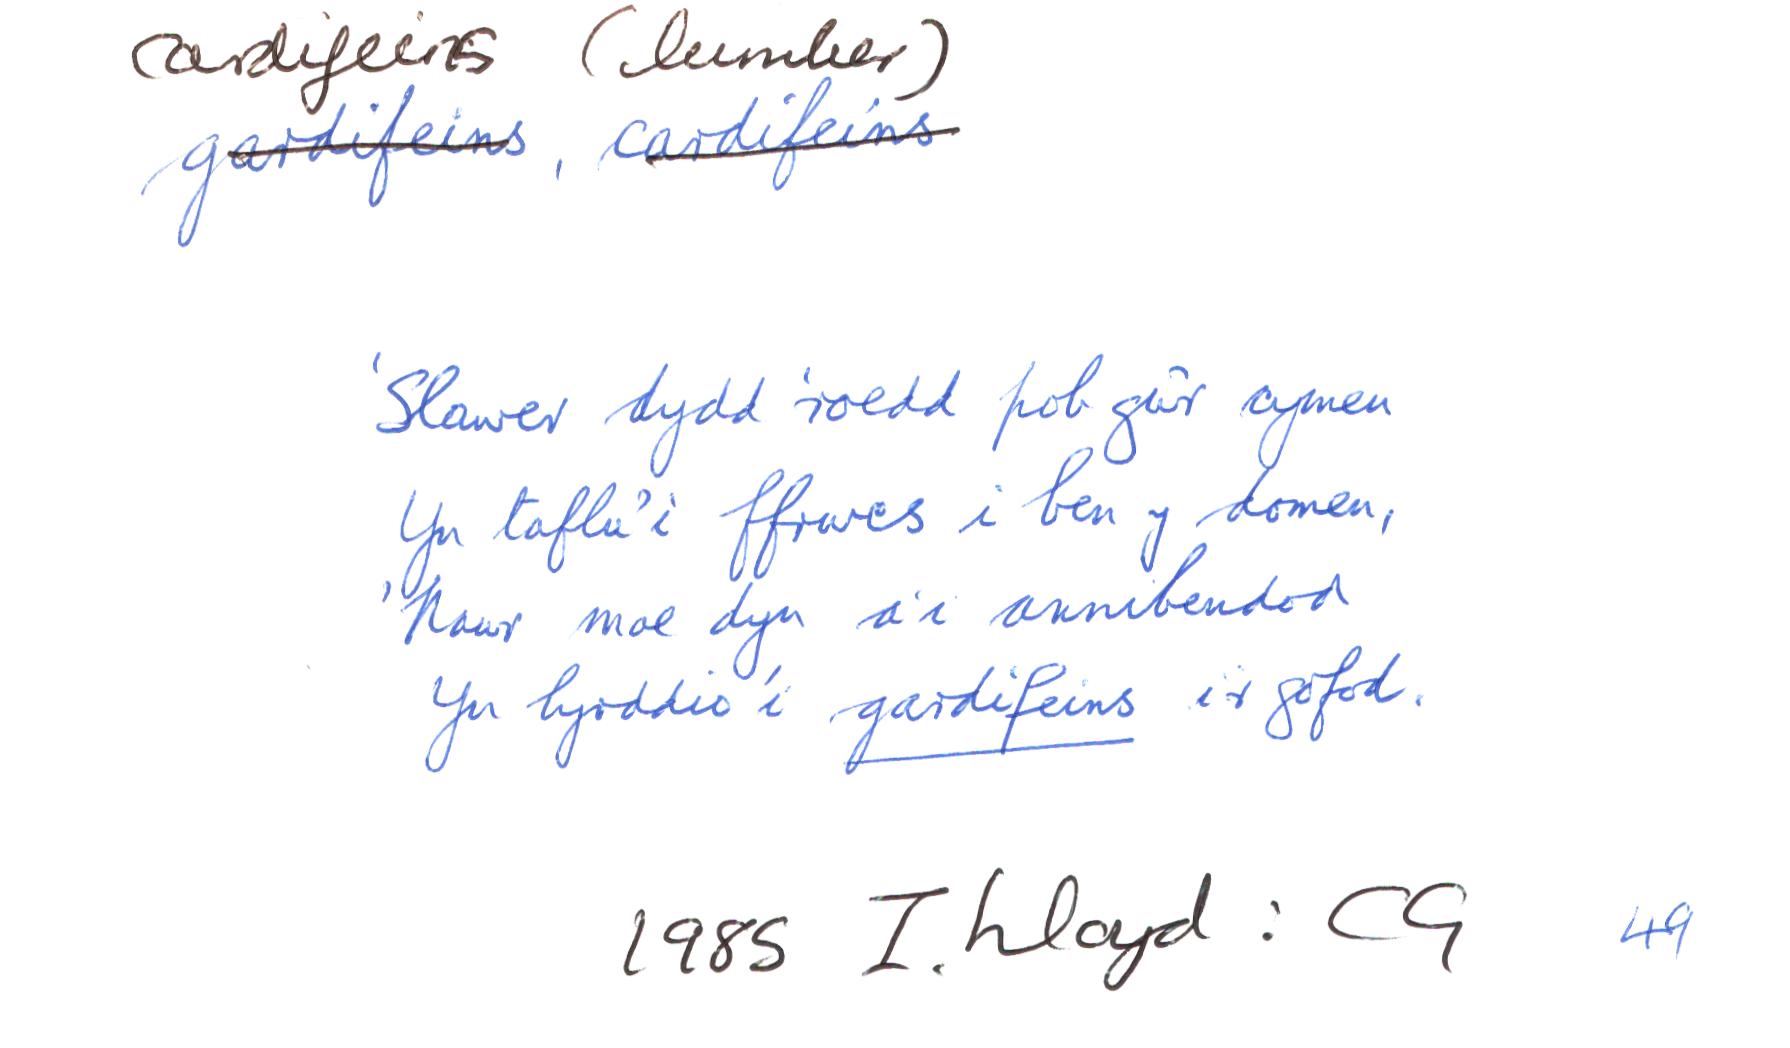 cardifeins (lumber)
gardifeins, cardifeins
'Slawer dydd 'roedd pob gŵr cymen
Yn taflu'i ffrwcs i ben y domen,
'Nawr mae dyn a'i annibendod
Yn hyrddio'i gardifeins i'r gofod.
1985 I. Lloyd : CG 49